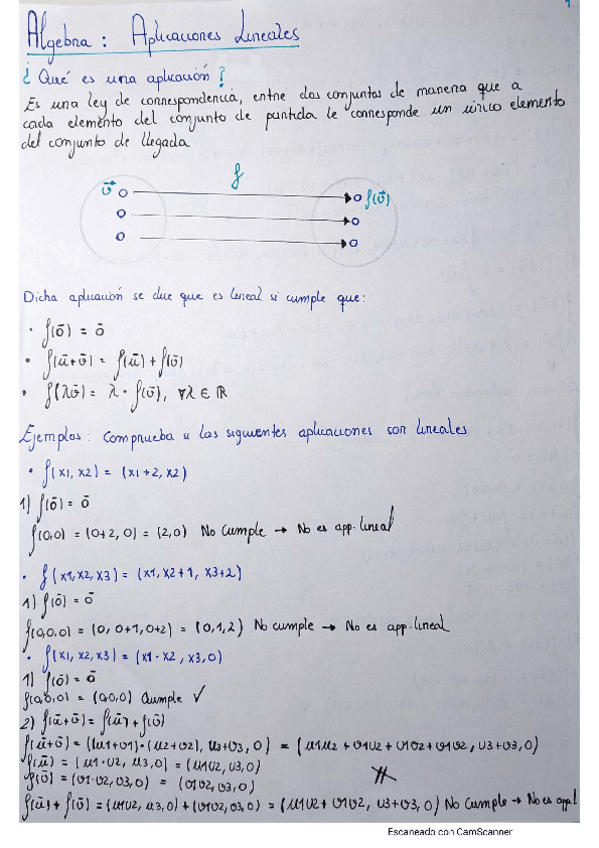 1
Algebra: Aplicaciones Lineales
¿Qué es una aplicación?
Es una ley de correspondencia, entre dos conjuntos de manera que a
cada elemento del conjunto de partida le corresponde un único elemento
del conjunto de llegada
f
v⃗ f(v̄)
Dicha aplicación se dice que es lineal si cumple que:
• f(ō) = ō
• f(ū+v̄) = f(ū) + f(v̄)
• f(λv̄) = λ · f(v̄), ∀λ ∈ ℝ
Ejemplos: Comprueba si las siguientes aplicaciones son lineales
• f(x1, x2) = (x1+2, x2)
1) f(ō) = ō
f(0,0) = (0+2, 0) = (2,0) No Cumple → No es app. lineal
• f(x1, x2, x3) = (x1, x2+1, x3+2)
1) f(ō) = ō
f(0,0,0) = (0, 0+1, 0+2) = (0,1,2) No cumple → No es app. lineal
• f(x1, x2, x3) = (x1·x2, x3, 0)
1) f(ō) = ō
f(0,0,0) = (0,0,0) Cumple ✓
2) f(ū+v̄) = f(ū) + f(v̄)
f(ū+v̄) = ((u1+v1)·(u2+v2), u3+v3, 0) = (u1u2 + v1u2 + v1v2 + v1v2, u3+v3, 0)
f(ū) = (u1·u2, u3, 0) = (u1u2, u3, 0)
f(v̄) = (v1·v2, v3, 0) = (v1v2, v3, 0)
f(ū) + f(v̄) = (u1u2, u3, 0) + (v1v2, v3, 0) = (u1u2 + v1v2, u3+v3, 0) No Cumple → No es app l
Escaneado con CamScanner